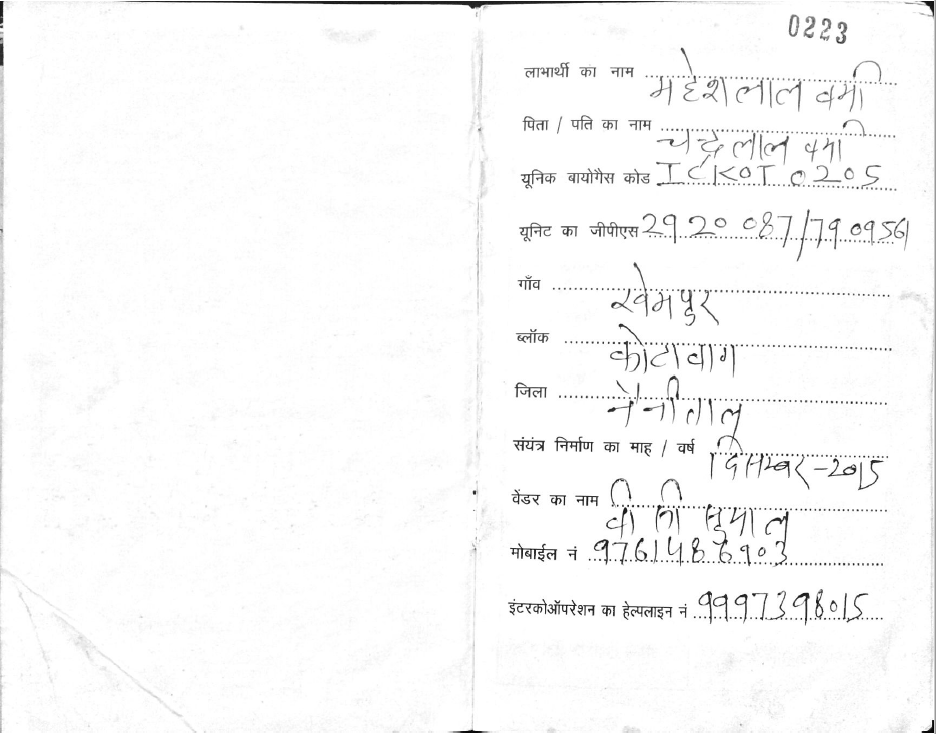 0223
लाभार्थी का नाम महेश लाल वर्मा
पिता / पति का नाम चन्द्र लाल वर्मा
यूनिक बायोगैस कोड ICKOT 0205
यूनिट का जीपीएस 29.20 087/79 09561
गाँव खेमपुर
ब्लॉक कोटावाग
जिला नैनीताल
संयंत्र निर्माण का माह / वर्ष दिसम्बर-2015
वेंडर का नाम
मोबाईल नं 9761486903
इंटरकोऑपरेशन का हेल्पलाइन नं 9997398015